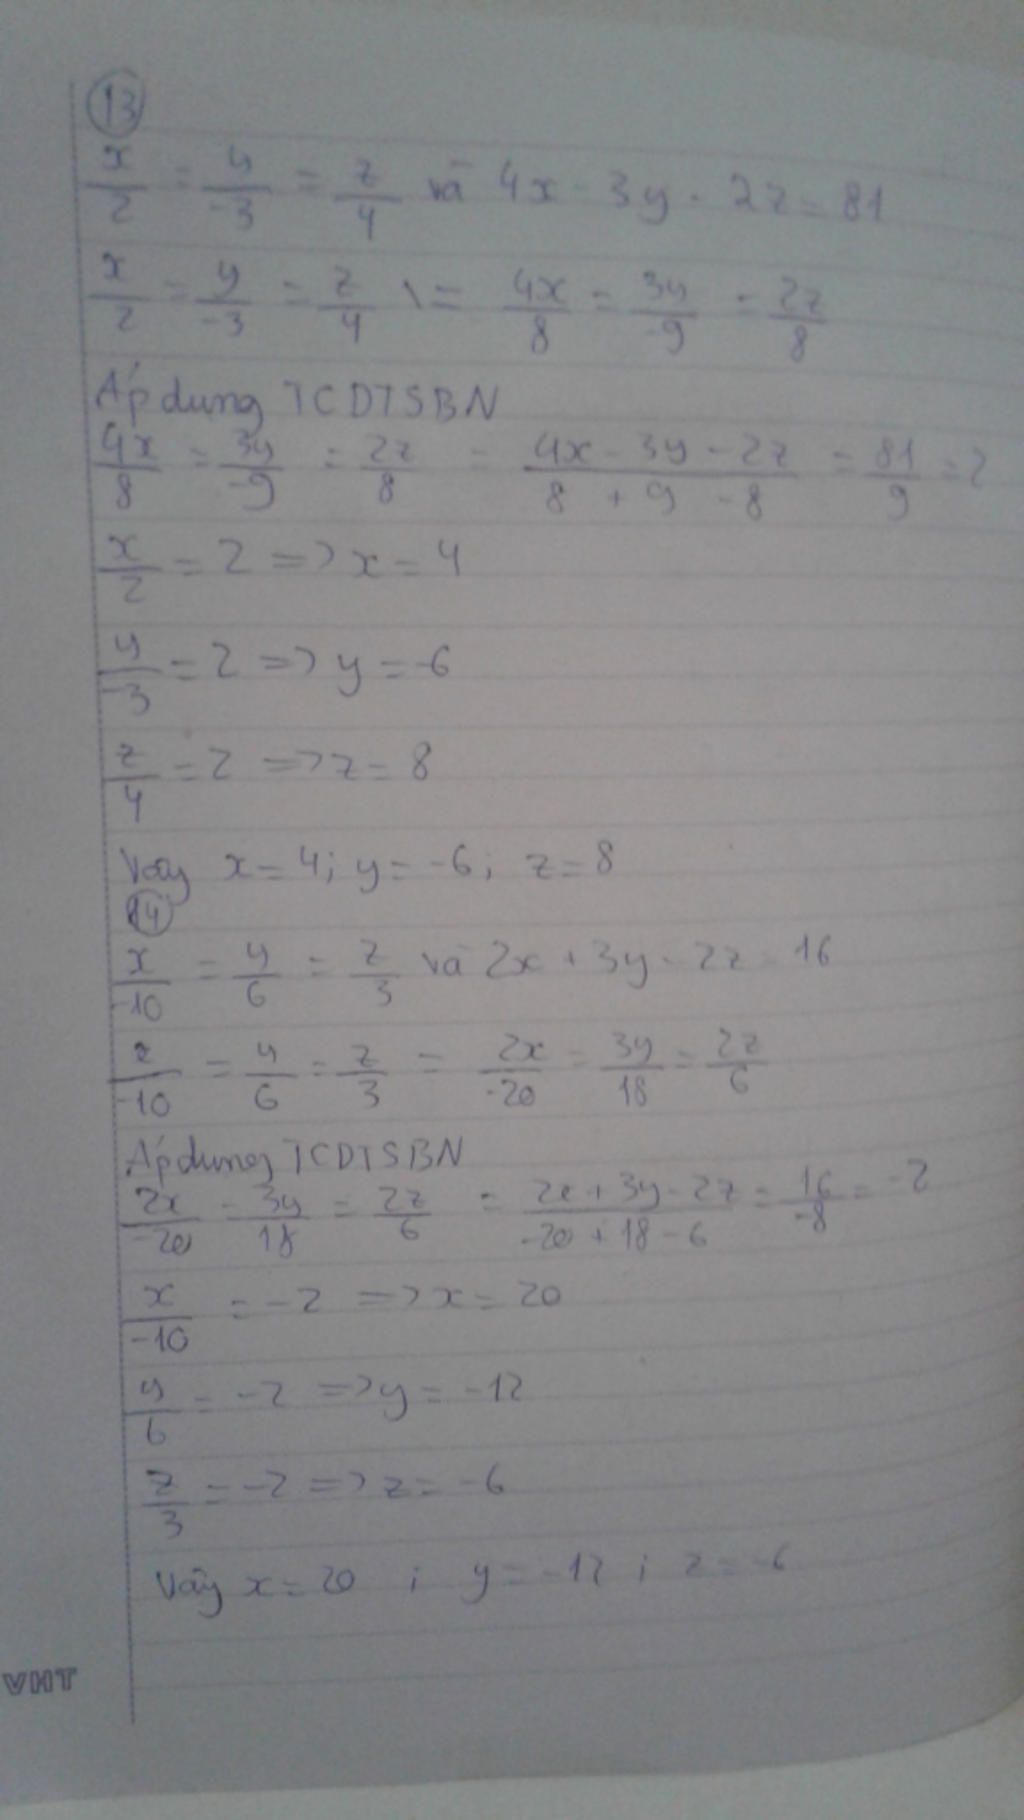 13
x/2 = y/-3 = z/4 và 4x - 3y - 2z = 81
x/2 = y/-3 = z/4 \= 4x/8 = 3y/-9 = 2z/8
Áp dung TCDTSBN
4x/8 = 3y/-9 = 2z/8 = (4x - 3y - 2z)/(8 + 9 - 8) = 81/9 = 2
x/2 = 2 => x = 4
y/-3 = 2 => y = -6
z/4 = 2 => z = 8
Vậy x = 4; y = -6; z = 8
14
x/-10 = y/6 = z/3 và 2x + 3y - 2z = 16
x/-10 = y/6 = z/3 = 2x/-20 = 3y/18 = 2z/6
Áp dung TCDTSBN
2x/-20 = 3y/18 = 2z/6 = (2x + 3y - 2z)/(-20 + 18 - 6) = 16/-8 = -2
x/-10 = -2 => x = 20
y/6 = -2 => y = -12
z/3 = -2 => z = -6
Vậy x = 20 ; y = -12 ; z = -6
VHT